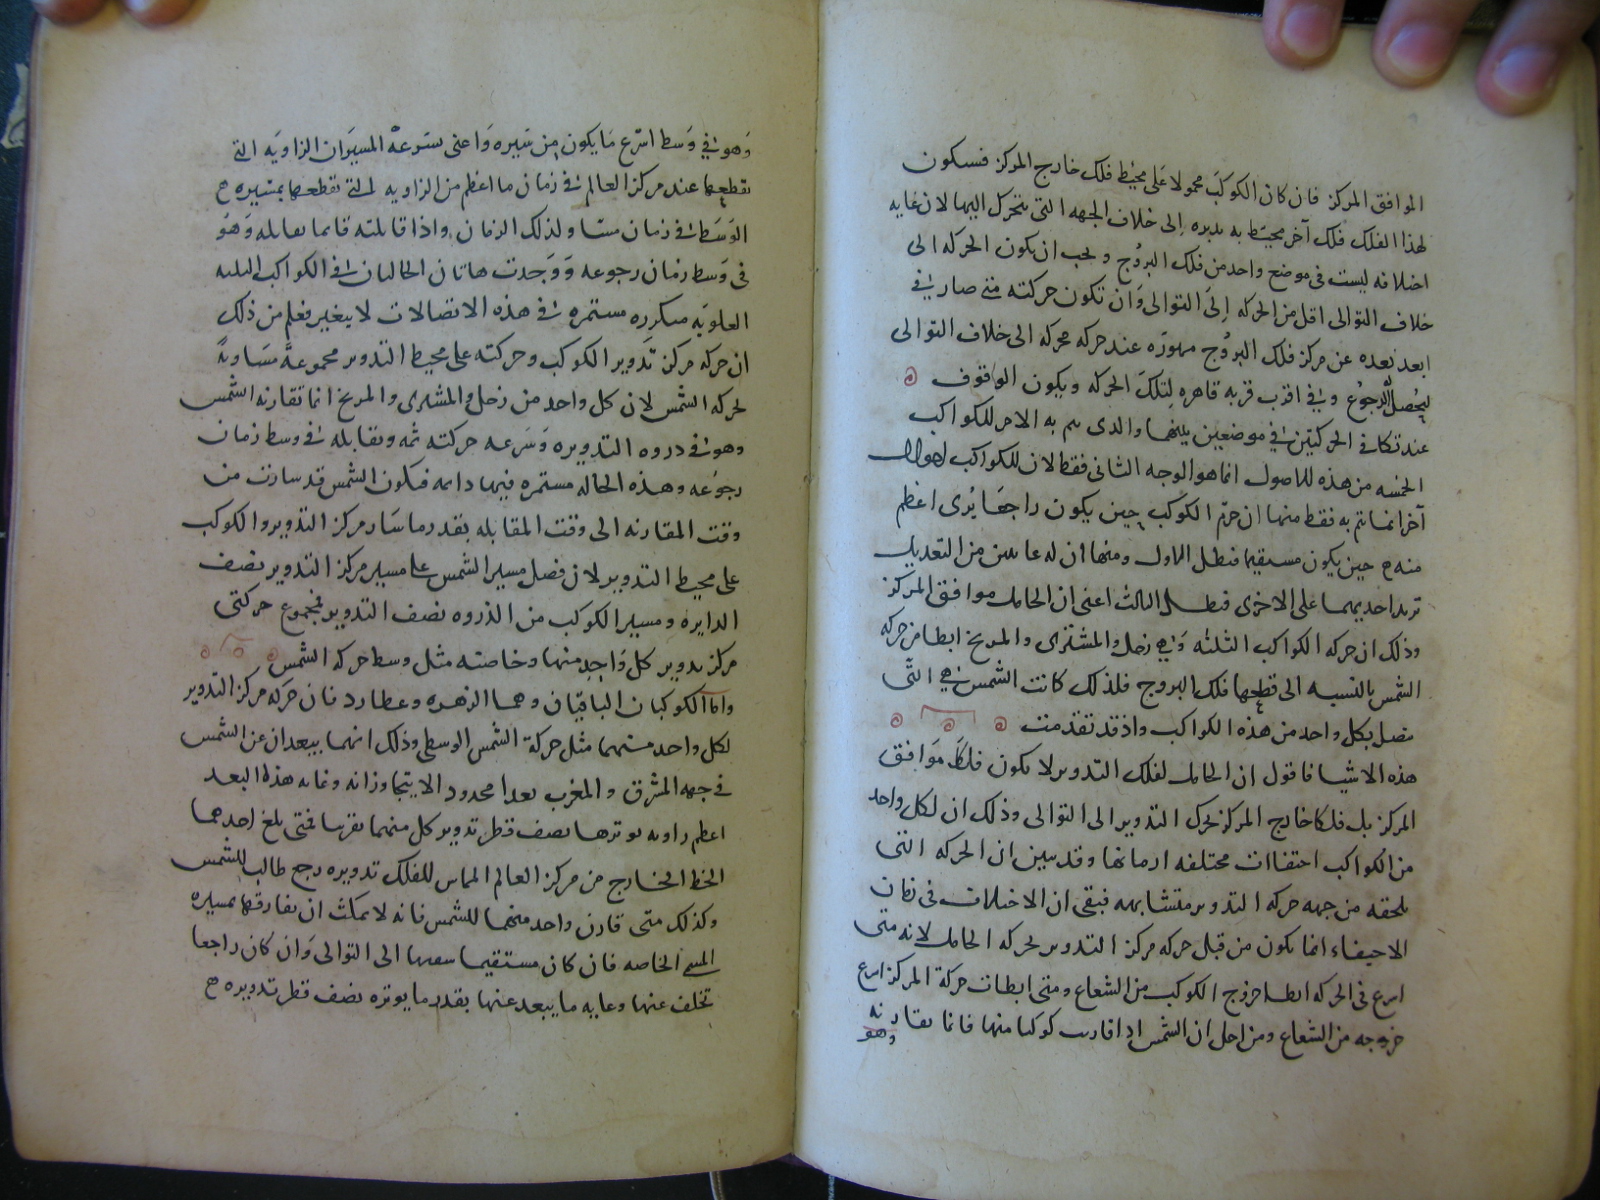 الموافق المركز فان كان الكوكب محمولا على محيط فلك خارج المركز فسيكون
لهذا الفلك فلك آخر محيط به يديره إلى خلاف الجهه التى يتحرك اليها لان غايه
اختلافه ليست فى موضع واحد من فلك البروج ويجب ان يكون الحركه الى
خلاف التوالى اقل من الحركه إلى التوالى وان تكون حركته متى صار في
ابعد بعده عن مركز فلك البروج مقهوره عند حركه محركه الى خلاف التوالى
ليحصل الرجوع وفي اقرب قربه قاهره لتلك الحركه ويكون الوقوف
عند تكافى الحركتين في موضعين بينهما والذى يتم به الامر للكواكب
الخمسه من هذه الاصول انما هو الوجه الثانى فقط لان للكواكب احوالا
آخر انما يتم به فقط منها ان جرم الكوكب حين يكون راجعا يُرى اعظم
منه حين يكون مستقيما فبطل الاول ومنها ان له غايتين من التعديل
تزيد احديهما على الاخرى فبطل الثالث اعنى ان الحامل موافق المركز
وذلك ان حركه الكواكب الثلثه وهي زحل والمشترى والمريخ ابطا من حركه
الشمس بالنسبه الى قطعها فلك البروج فلذلك كانت الشمس هي التى
تتصل بكل واحد من هذه الكواكب واذ قد تقدمت
هذه الاشيا فاقول ان الحامل لفلك التدوير لا يكون فلكا موافق
المركز بل فلكا خارج المركز يحرك التدوير الى التوالى وذلك ان لكل واحد
من الكواكب اختفاات مختلفه ازمانها وقد تبين ان الحركه التى
تلحقه من جهه حركه التدوير متشابهه فبقى ان الاختلاف فى زمان
الاختفاء انما يكون من قبل حركه مركز التدوير بحركه الحامل لانه متى
اسرع فى الحركه ابطا خروج الكوكب من الشعاع ومتى ابطات حركة المركز اسرع
خروجه من الشعاع ومن اجل ان الشمس اذا قارنت كوكبا منها فانما تقارنه
وهو
وهو في وسط اسرع ما يكون من سيره واعنى بسرعة المسير ان الزاويه التى
تقطعها عند مركز العالم في زمان ما اعظم من الزاويه التى تقطعها بمسيره
الوسط في زمان مساو لذلك الزمان واذا قابلته فانما تقابله وهو
فى وسط زمان رجوعه ووجدت هاتان الحالتان في الكواكب الثلثه
العلويه متكرره مستمره في هذه الاتصالات لا يتغير يعلم من ذلك
ان حركه مركز تدوير الكوكب وحركته على محيط التدوير مجموعة مساوية
لحركه الشمس لان كل واحد من زحل والمشترى والمريخ انما تقارنه الشمس
وهو في ذروه التدويره وسرعه حركته ثمه وتقابله في وسط زمان
رجوعه وهذه الحاله مستمره فيها دائمه فيكون الشمس قد سارت من
وقت المقارنه الى وقت المقابله بقدر ما سار مركز التدوير والكوكب
على محيط التدوير لان فضل مسير الشمس على مسير مركز التدوير نصف
الدايره ومسير الكوكب من الذروه نصف التدوير فمجموع حركتى
مركز تدوير كل واحد منها وخاصته مثل وسط حركه الشمس
واما الكوكبان الباقيان وهما الزهره وعطارد فان حركه مركز التدوير
لكل واحد منهما مثل حركة الشمس الوسطى وذلك انهما يبعدان عن الشمس
في جهه المشرق والمغرب بعدا محدود الا يتجاوزانه وغايه هذا البعد
اعظم زاويه يوترها نصف قطر تدوير كل منهما تقريبا فمتى بلغ احدهما
الخط الخارج من مركز العالم المماس للفلك تدويره رجع طالب للشمس
وكذلك متى قارن واحد منهما للشمس فانه لا يمكث ان يفارقها بمسيره
المسمى الخاصه فان كان مستقيما سبقها الى التوالى وان كان راجعا
تخلف عنها وغايه ما يبعد عنها بقدر ما يوتره نصف قطر تدويره